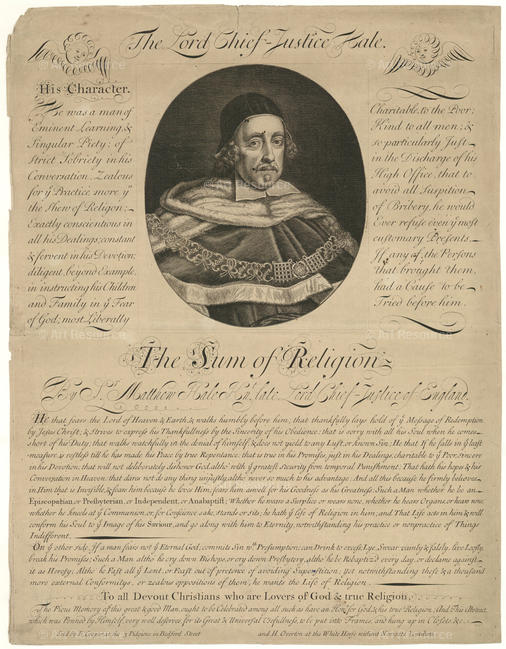 The Lord Chief-Justice Hale.
His Character.
He was a man of
Eminent Learning, &
Singular Piety; of
Strict Sobriety in his
Conversation. Zealous
for yͤ Practice more yⁿ
the Shew of Religion;
Exactly conscientious in
all his Dealings; constant
& fervent in his Devotion;
diligent, beyond Example,
in instructing his Children
and Family in yͤ Fear
of God; most Liberally
Charitable, to the Poor;
Kind to all men; &
so particularly Just
in the Discharge of his
High Office, that to
avoid all Suspition
of Bribery, he would
Ever refuse even yͤ most
customary Presents,
If any of the Persons
that brought them,
had a Cause to be
Tried before him.
The Sum of Religion
By Sͬ Matthew Hale Kᵗ, late Lord Chief-Justice of England.
He that fears the Lord of Heaven & Earth, & walks humbly before him, that thankfully lays hold of yͤ Message of Redemption
by Jesus Christ, & Strives to express his Thankfullness by the Sincerity of his Obedience: that is sorry with all his Soul when he comes
short of his Duty; that walks watchfully in the denial of himself & does not yield to any Lust, or known Sin; He that if he falls in yͤ least
measure, is restless till he has made his Peace by true Repentance; that is true in his Promises, just in his Dealings, charitable to yͤ Poor, sincere
in his Devotion; that will not deliberately dishonor God, altho' with yͤ greatest security from temporal Punishment: That hath his hope & his
Conversation in Heaven: that dares not do any thing unjustly, altho' never so much to his advantage: And all this because he firmly believes
in Him that is invisible, & fears him because he loves Him; fears him aswell for his Goodness as his Greatness; Such a Man whether he be an
Episcopatian, or Presbyterian, or Independent, or Anabaptist; Whether he wears a Surplice or wears none, whether he hears Organs or hears none,
whether he kneels at yͤ Communion, or for Conscience sake, stands or sits; he hath yͤ life of Religion in him; and That Life acts in him & will
conform his Soul to yͤ Image of his Saviour, and go along with him to Eternity, notwithstanding his practice or nonpractice of Things
Indifferent.
On yͤ other side, If a man fears not yͤ Eternal God; commits Sin wͭͪ Presumption; can Drink to excess, Lye, Swear vainly & falsly, live Loosly,
break his Promises; Such a Man altho' he cry down Bishops, or cry down Presbytery, altho' he be Rebaptiz'd every day, or declame against
it as Heresy; Altho' he Fast all yͤ Lent, or Feast out of pretence of avoiding Superstition; yet notwithstanding these & a thousand
more external Conformitys, or zealous oppositions of them, he wants the Life of Religion.
To all Devout Christians who are Lovers of God & true Religion.
The Pious Memory of this great & good Man, ought to be Celebrated among all such as have an Honͬ for God & his true Religion. And This Abstract,
which was Penned by Himself, very well deserves, for its Great & Universal Usefullness, to be put into Frames, and hung up in Closets, &c.
Sold by E. Cooper at the 3 Pidgeons in Bedford Street
and H. Overton at the White Horse without Newgate London.
© Art Resource